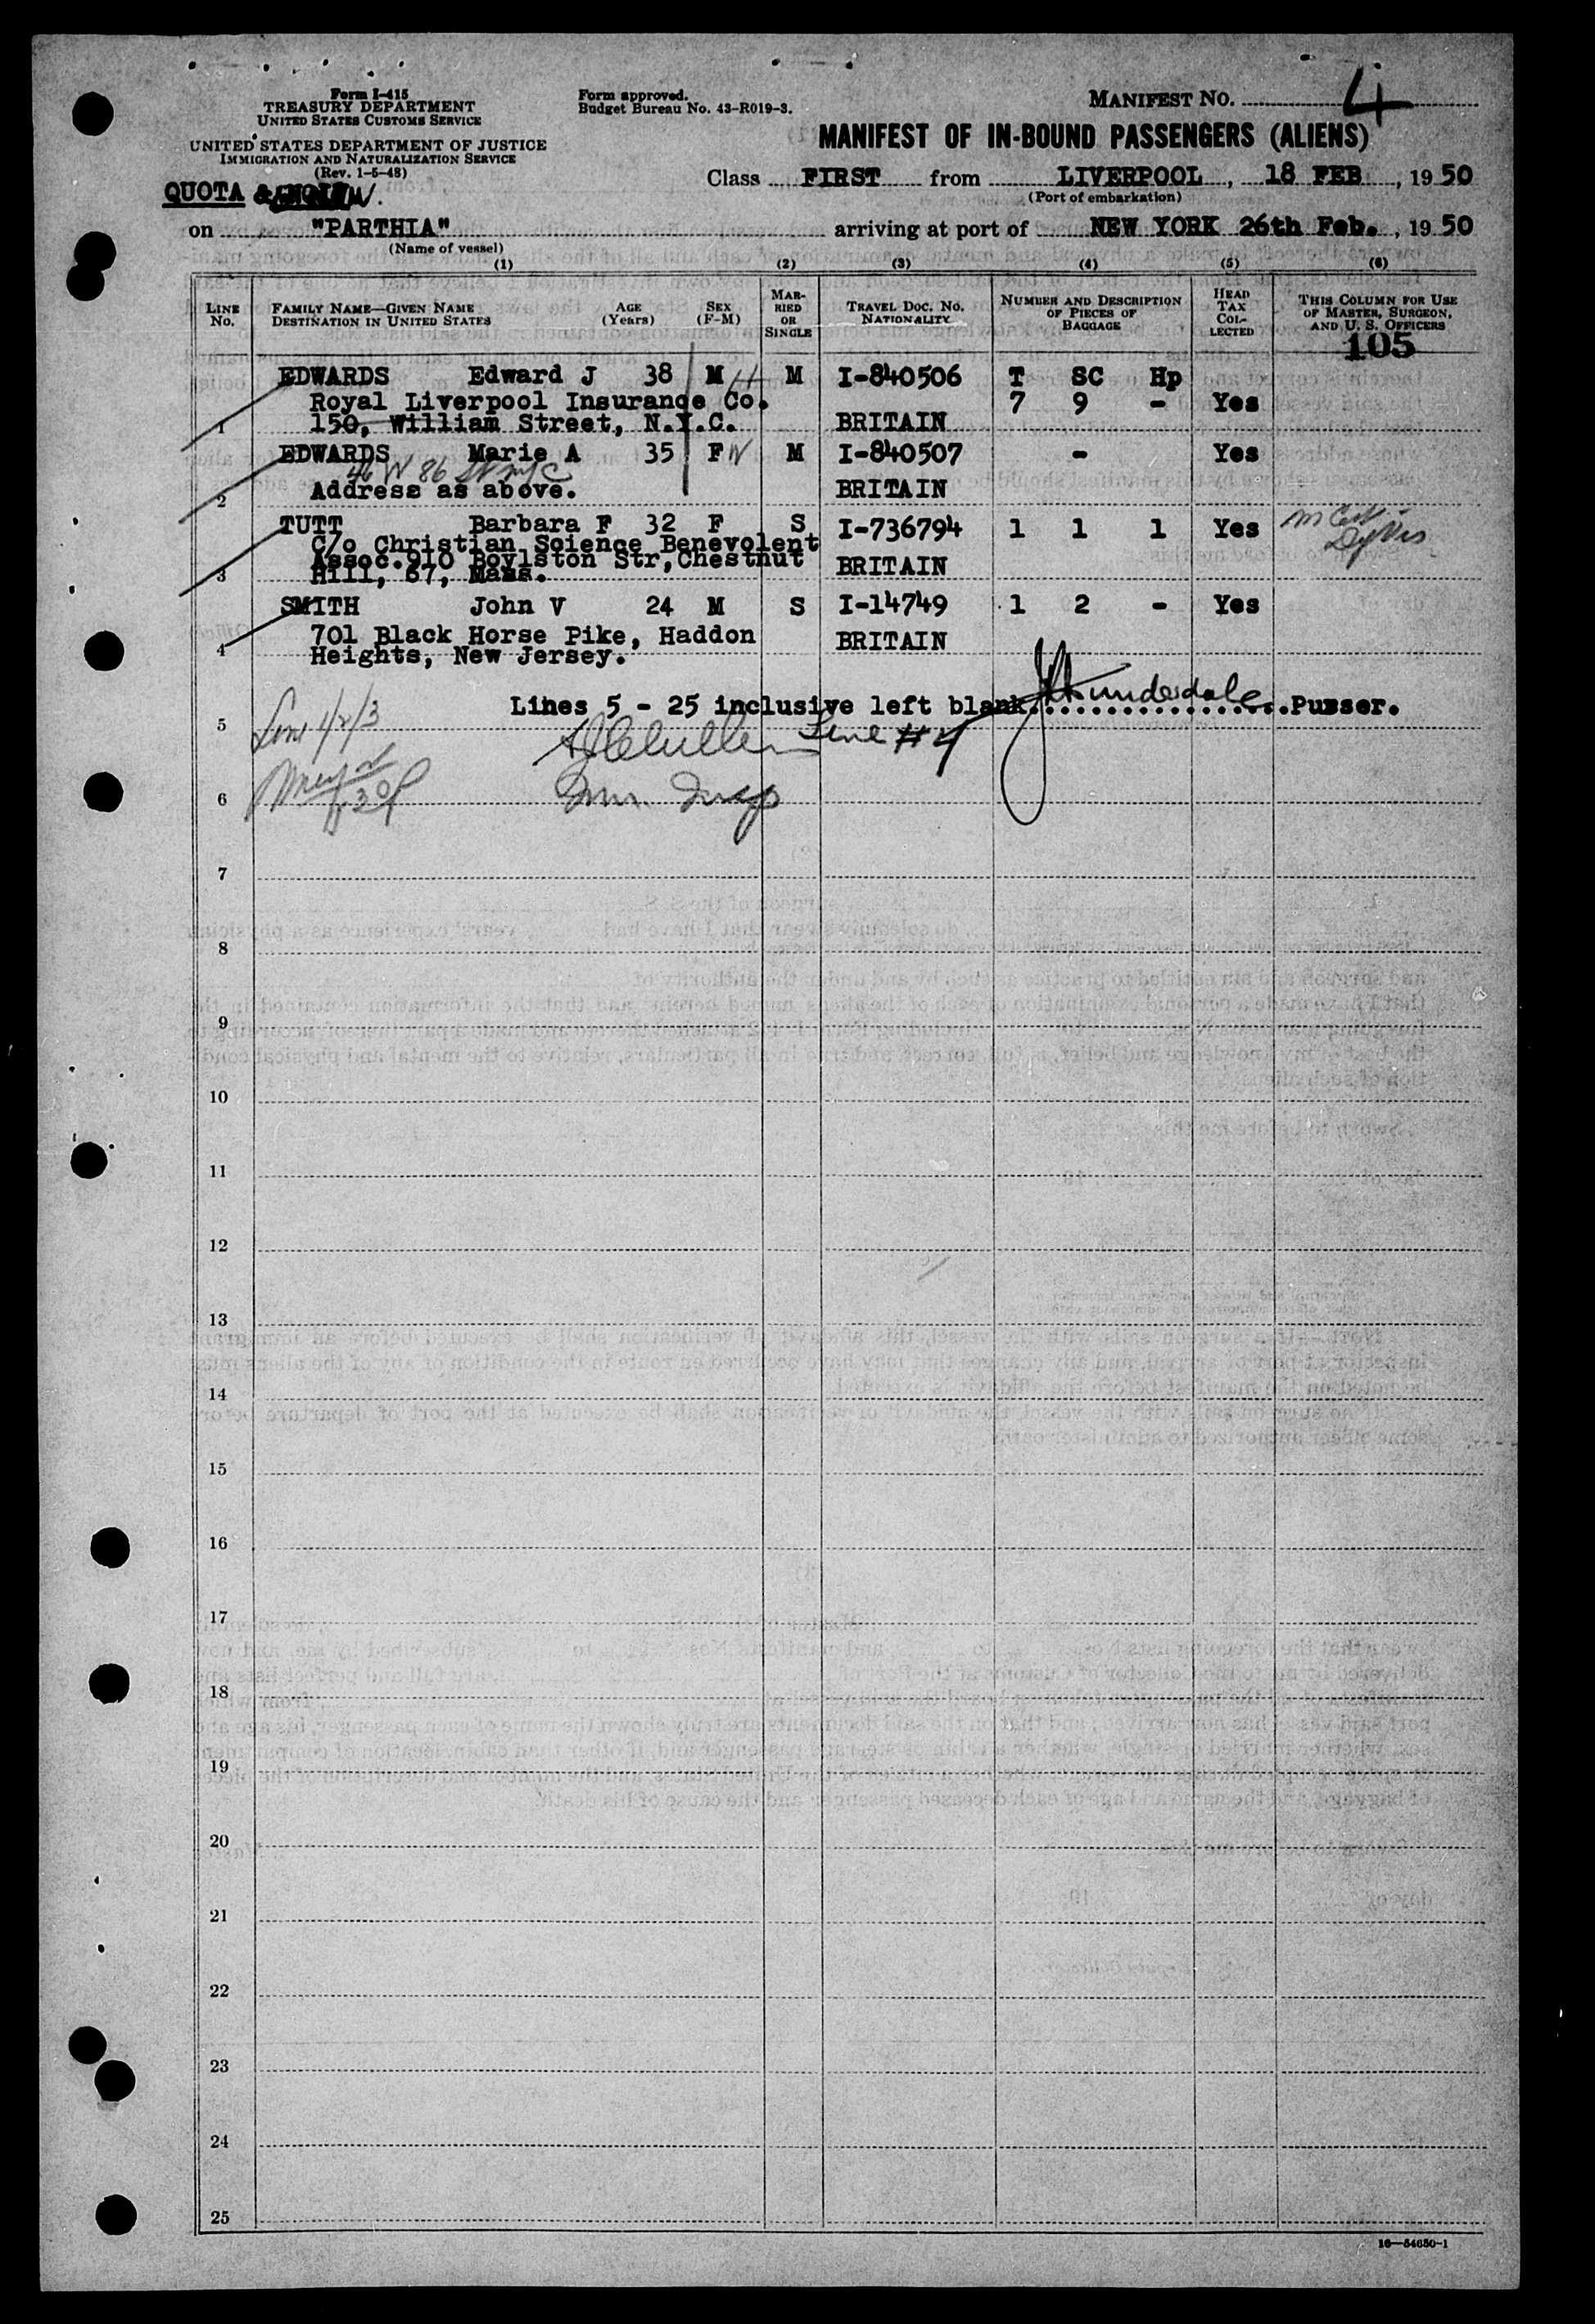 Form I-415
TREASURY DEPARTMENT
UNITED STATES CUSTOMS SERVICE
UNITED STATES DEPARTMENT OF JUSTICE
IMMIGRATION AND NATURALIZATION SERVICE
(Rev. 1-5-48)
Form approved.
Budget Bureau No. 43-R019-3.
MANIFEST NO. 4
MANIFEST OF IN-BOUND PASSENGERS (ALIENS)
QUOTA &
Class FIRST from LIVERPOOL, 18 FEB, 1950
(Port of embarkation)
on "PARTHIA" arriving at port of NEW YORK 26th Feb., 1950
(Name of vessel)
(1) (2) (3) (4) (5) (6)
LINE No.
FAMILY NAME—GIVEN NAME
DESTINATION IN UNITED STATES
AGE (Years)
SEX (F-M)
MARRIED OR SINGLE
TRAVEL DOC. NO.
NATIONALITY
NUMBER AND DESCRIPTION OF PIECES OF BAGGAGE
HEAD TAX COLLECTED
THIS COLUMN FOR USE OF MASTER, SURGEON, AND U. S. OFFICERS
105
EDWARDS Edward J 38 M M I-840506 T SC Hp
Royal Liverpool Insurance Co. 7 9 - Yes
1 150, William Street, N.Y.C. BRITAIN
EDWARDS Marie A 35 F M I-840507 - Yes
46 W 86 St NYC
2 Address as above. BRITAIN
TUTT Barbara F 32 F S I-736794 1 1 1 Yes
C/o Christian Science Benevolent
Assoc. 910 Boylston Str, Chestnut BRITAIN
3 Hill, 67, Mass.
SMITH John V 24 M S I-14749 1 2 - Yes
701 Black Horse Pike, Haddon BRITAIN
4 Heights, New Jersey.
Lines 5 - 25 inclusive left blank. Purser.
5 Line 1/2/3 Line #4
6
7
8
9
10
11
12
13
14
15
16
17
18
19
20
21
22
23
24
25
16—54650-1